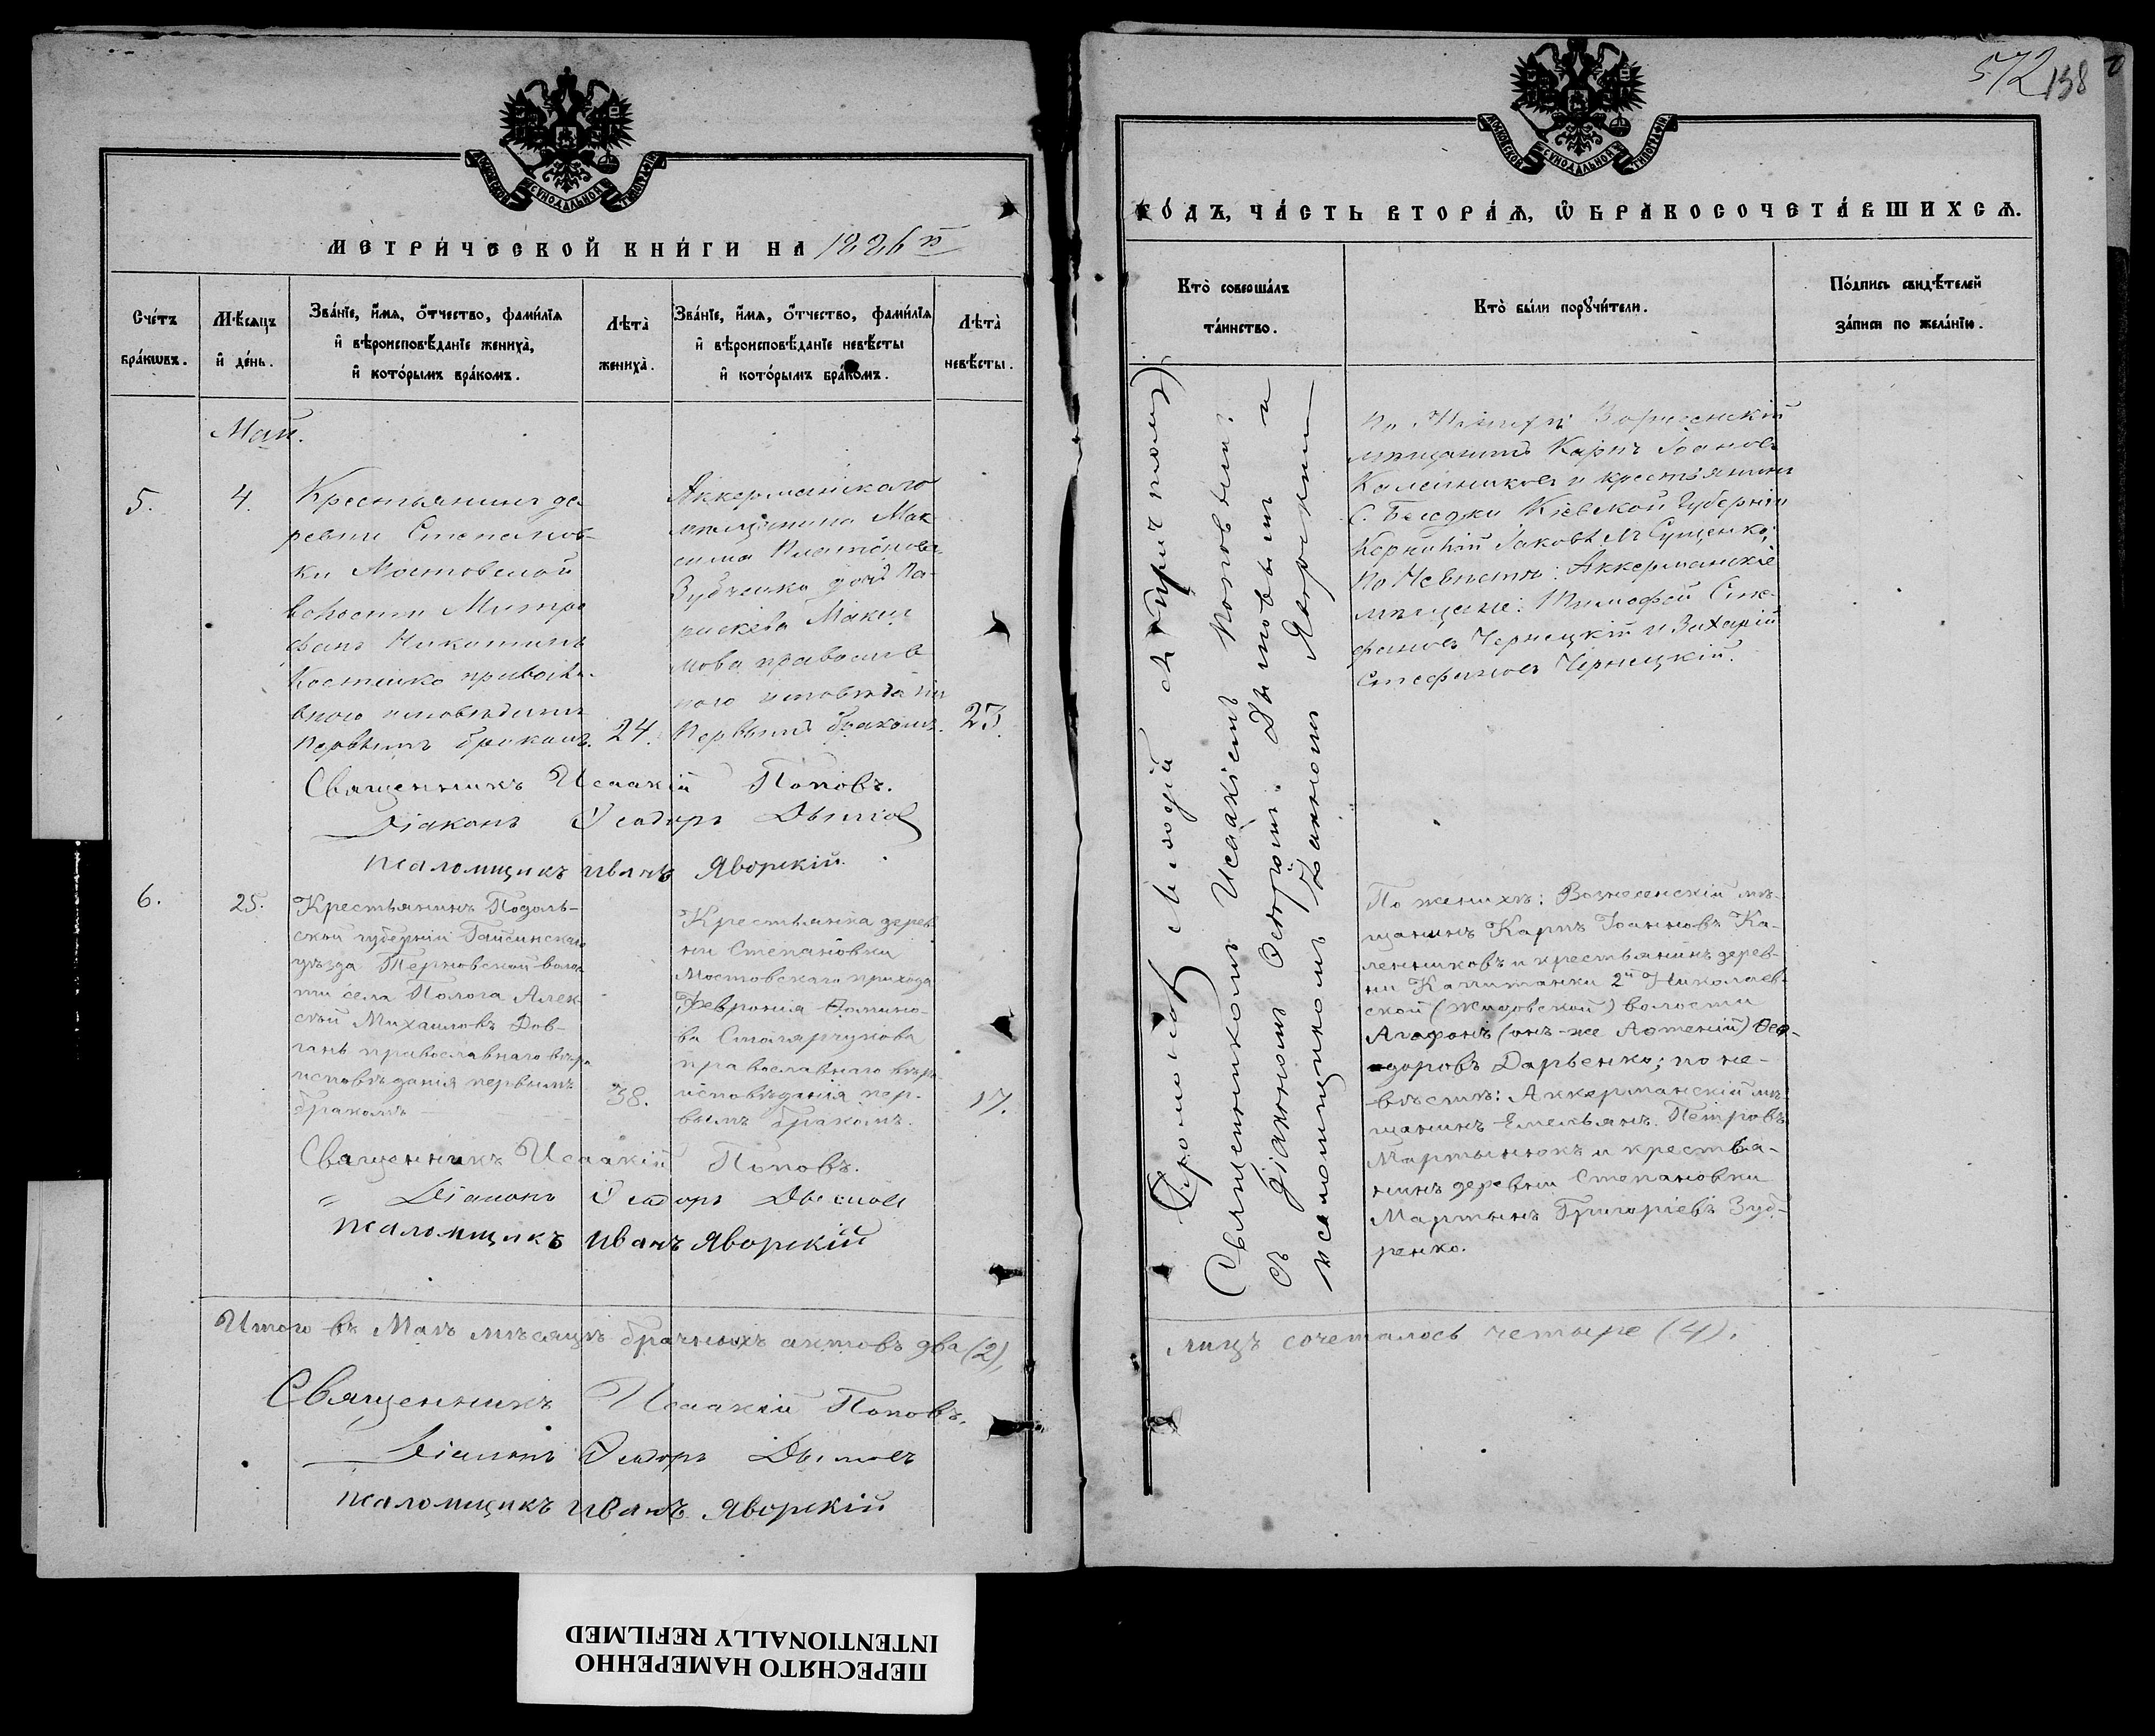 572 138
МОСКОВСКОЙ СУНОДАЛЬНОЙ ТИПОГРАФІИ
МЕТРИ́ЧЕСКОЙ КНИ́ГИ НА 1886 й
Сче́тъ бра́кѡвъ.
Мѣ́сяцъ и҆ де́нь.
Зва́нїе, и҆́мя, ѻ҆́тчество, фами́лїя
и҆ вѣроисповѣ́данїе жениха̀,
и҆ кото́рымъ бра́комъ.
Лѣта̀ жениха̀.
Зва́нїе, и҆́мя, ѻ҆́тчество, фами́лїя
и҆ вѣроисповѣ́данїе невѣ́сты
и҆ кото́рымъ бра́комъ.
Лѣта̀ невѣ́сты.
Май.
5.
4.
Крестьянинъ де
ревни Степанов-
ки Мостовской
волости Митро
фанъ Никитинъ
Костенко правосла-
внаго исповѣданія
первымъ бракомъ.
24.
Аккерманскаго
мѣщанина Мак
сима Платонова
Зубченко дочь Па-
раскева Макси
мова православ
наго исповѣданія
Первымъ бракомъ.
23.
Священникъ Исаакій Поповъ.
Діаконъ Ѳеодоръ Дымов
псаломщикъ Иванъ Яворскій.
6.
25.
Крестьянинъ Подоль-
ской губерніи Гайсинскаго
уѣзда Терновской волос
ти села Полога Алек-
сѣй Михаиловъ Дов-
гань православнаго вѣро
исповѣданія первымъ
бракомъ
38.
Крестьянка дерев-
ни Степановки
Мостовскаго прихода
Февронія Фомино-
ва Столярчукова
православнаго вѣро
исповѣданія пер-
вымъ бракомъ.
17.
Священникъ Исаакій Поповъ.
" Діаконъ Ѳеодоръ Дымовъ
псаломщикъ Иванъ Яворскій
Итого въ Маѣ мѣсяцѣ брачныхъ актовъ два (2),
Священникъ Исаакій Поповъ.
Діаконъ Ѳеодоръ Дымовъ
псаломщикъ Иванъ Яворскій
МОСКОВСКОЙ СУНОДАЛЬНОЙ ТИПОГРАФІИ
ГО́ДЪ, ЧА́СТЬ ВТОРА́Я, Ѽ БРАКОСОЧЕТА́ВШИХСЯ.
Кто̀ соверша́лъ
та́инство.
Кто̀ бы́ли порꙋчи́тели.
По́дпись свидѣ́телей
за́писи по жела́нїю.
съ причтомъ)
Священникомъ Исаакіемъ Поповымъ
съ діакономъ Ѳеодоромъ Дымовымъ и
псаломщикомъ Іоанномъ Яворскимъ
По Жениху: Вознесенскій
мѣщанинъ Карпъ Іоановъ
Каленниковъ и крестьянинъ
С. Кіевской Губерніи
Іаковъ Сущенко;
по Невѣстѣ: Аккерманскіе
мѣщане: Тимофей Сте-
фановъ Чернецкій и Захарій
Стефановъ Чернецкій.
По женихѣ: Вознесенскій мѣ-
щанинъ Карпъ Іоанновъ Ка-
ленниковъ и крестьянинъ дерев-
ни Капитанки 2й Николаев-
ской (Жидовской) волости
Агафонъ (онъ-же Ѳео-
доровъ Дарьенко; по не-
вѣстѣ: Аккерманскій мѣ-
щанинъ Емельянъ Петровъ
Мартынюкъ и крестья-
нинъ деревни Степановки
Мартынъ Григоріевъ Зуб-
ренко.
лицъ сочеталось четыре (4).
ПЕРЕСНЯТО НАМЕРЕННО
INTENTIONALLY REFILMED